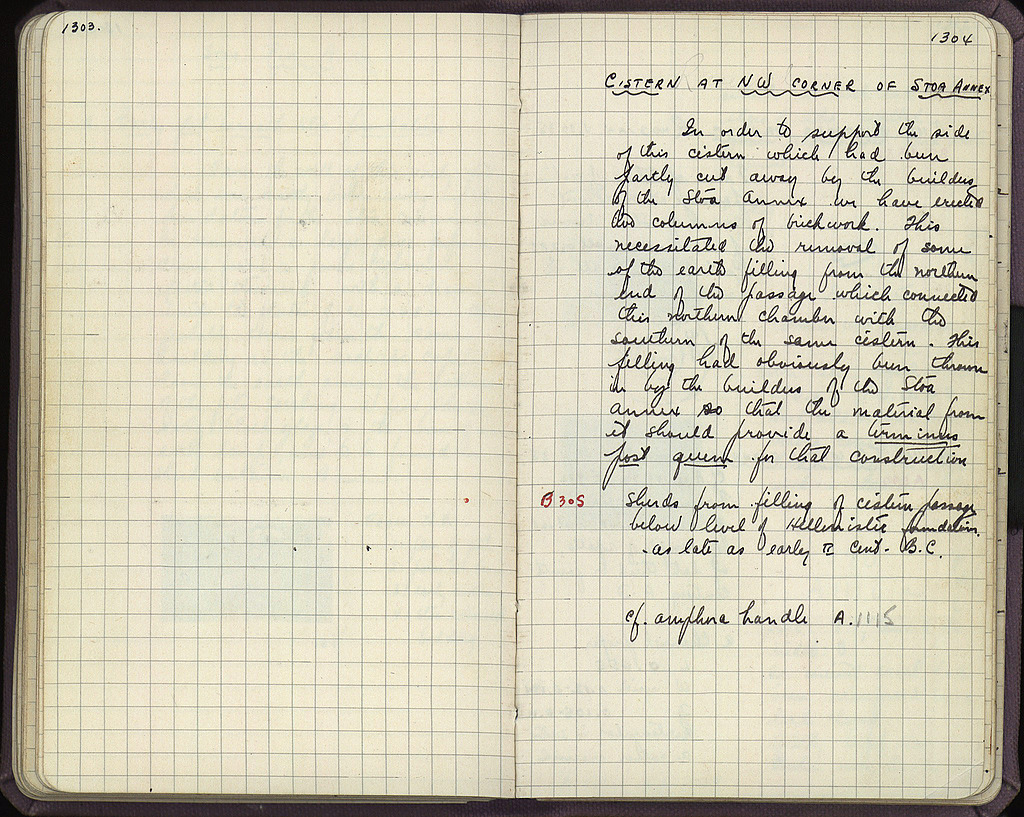 1303.
1304
CISTERN AT NW CORNER OF STOA ANNEX
In order to support the side
of this cistern which had been
partly cut away by the builders
of the Stoa Annex we have erected
two columns of brickwork. This
necessitated the removal of some
of the earth filling from the northern
end of the passage which connected
this northern chamber with the
southern of the same cistern. This
filling had obviously been thrown
in by the builders of the Stoa
annex so that the material from
it should provide a terminus
post quem for that construction
B 305
Sherds from filling of cistern passage
below level of Hellenistic foundation.
- as late as early II Cent. B.C.
cf. amphora handle A. 1115